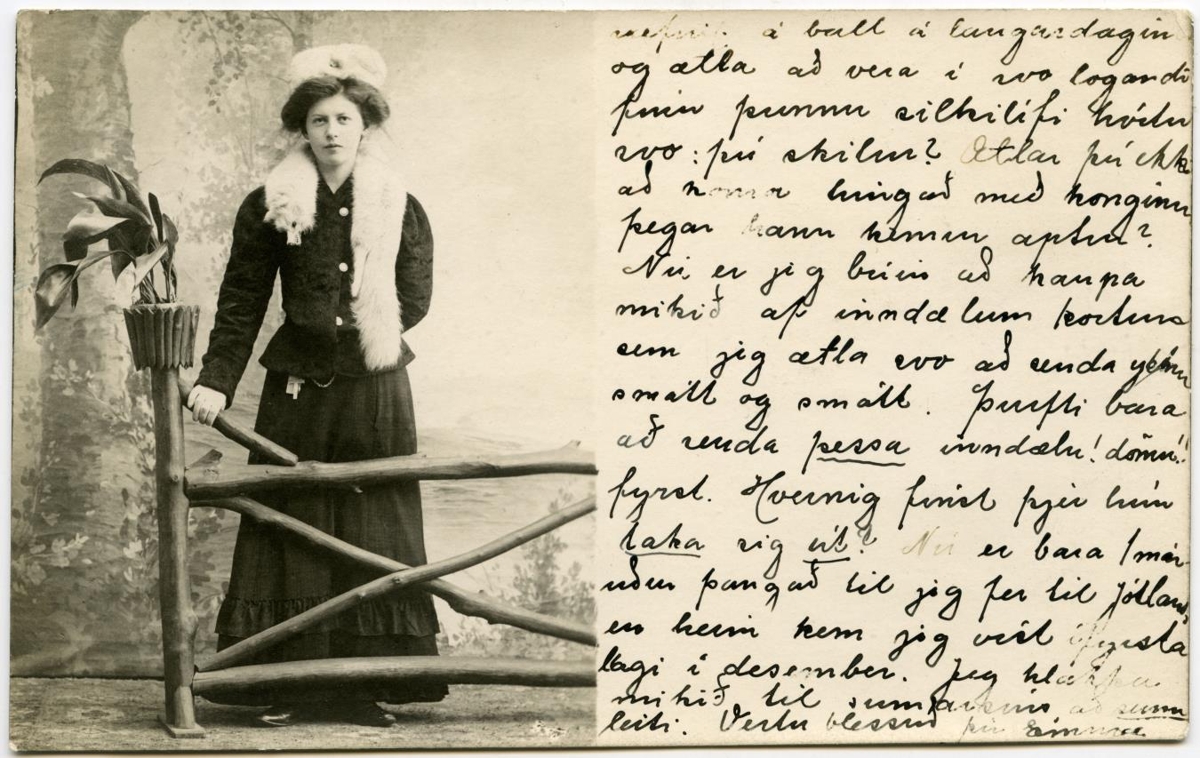 á ball á laugardaginn
og ætla að vera í svo logandi
fínu þunnu silkilífi hvítu
svo: þú skilur? Ætlar þú ekki
að koma hingað með konginum
þegar hann kemur aptur?
Nú er jeg búin að kaupa
mikið af inndælum kortum
sem jeg ætla svo að senda
smátt og smátt. Þurfti bara
að senda þessa inndælu! dömu!!
fyrst. Hvernig finst þjer hún
taka sig út? Nú er bara 1 mán-
uður þangað til jeg fer til Jótlands
en heim kem jeg víst í fyrsta
lagi í desember. Jeg hlakka
mikið til sumarsins að sumu
leiti. Vertu blessuð þín Emma